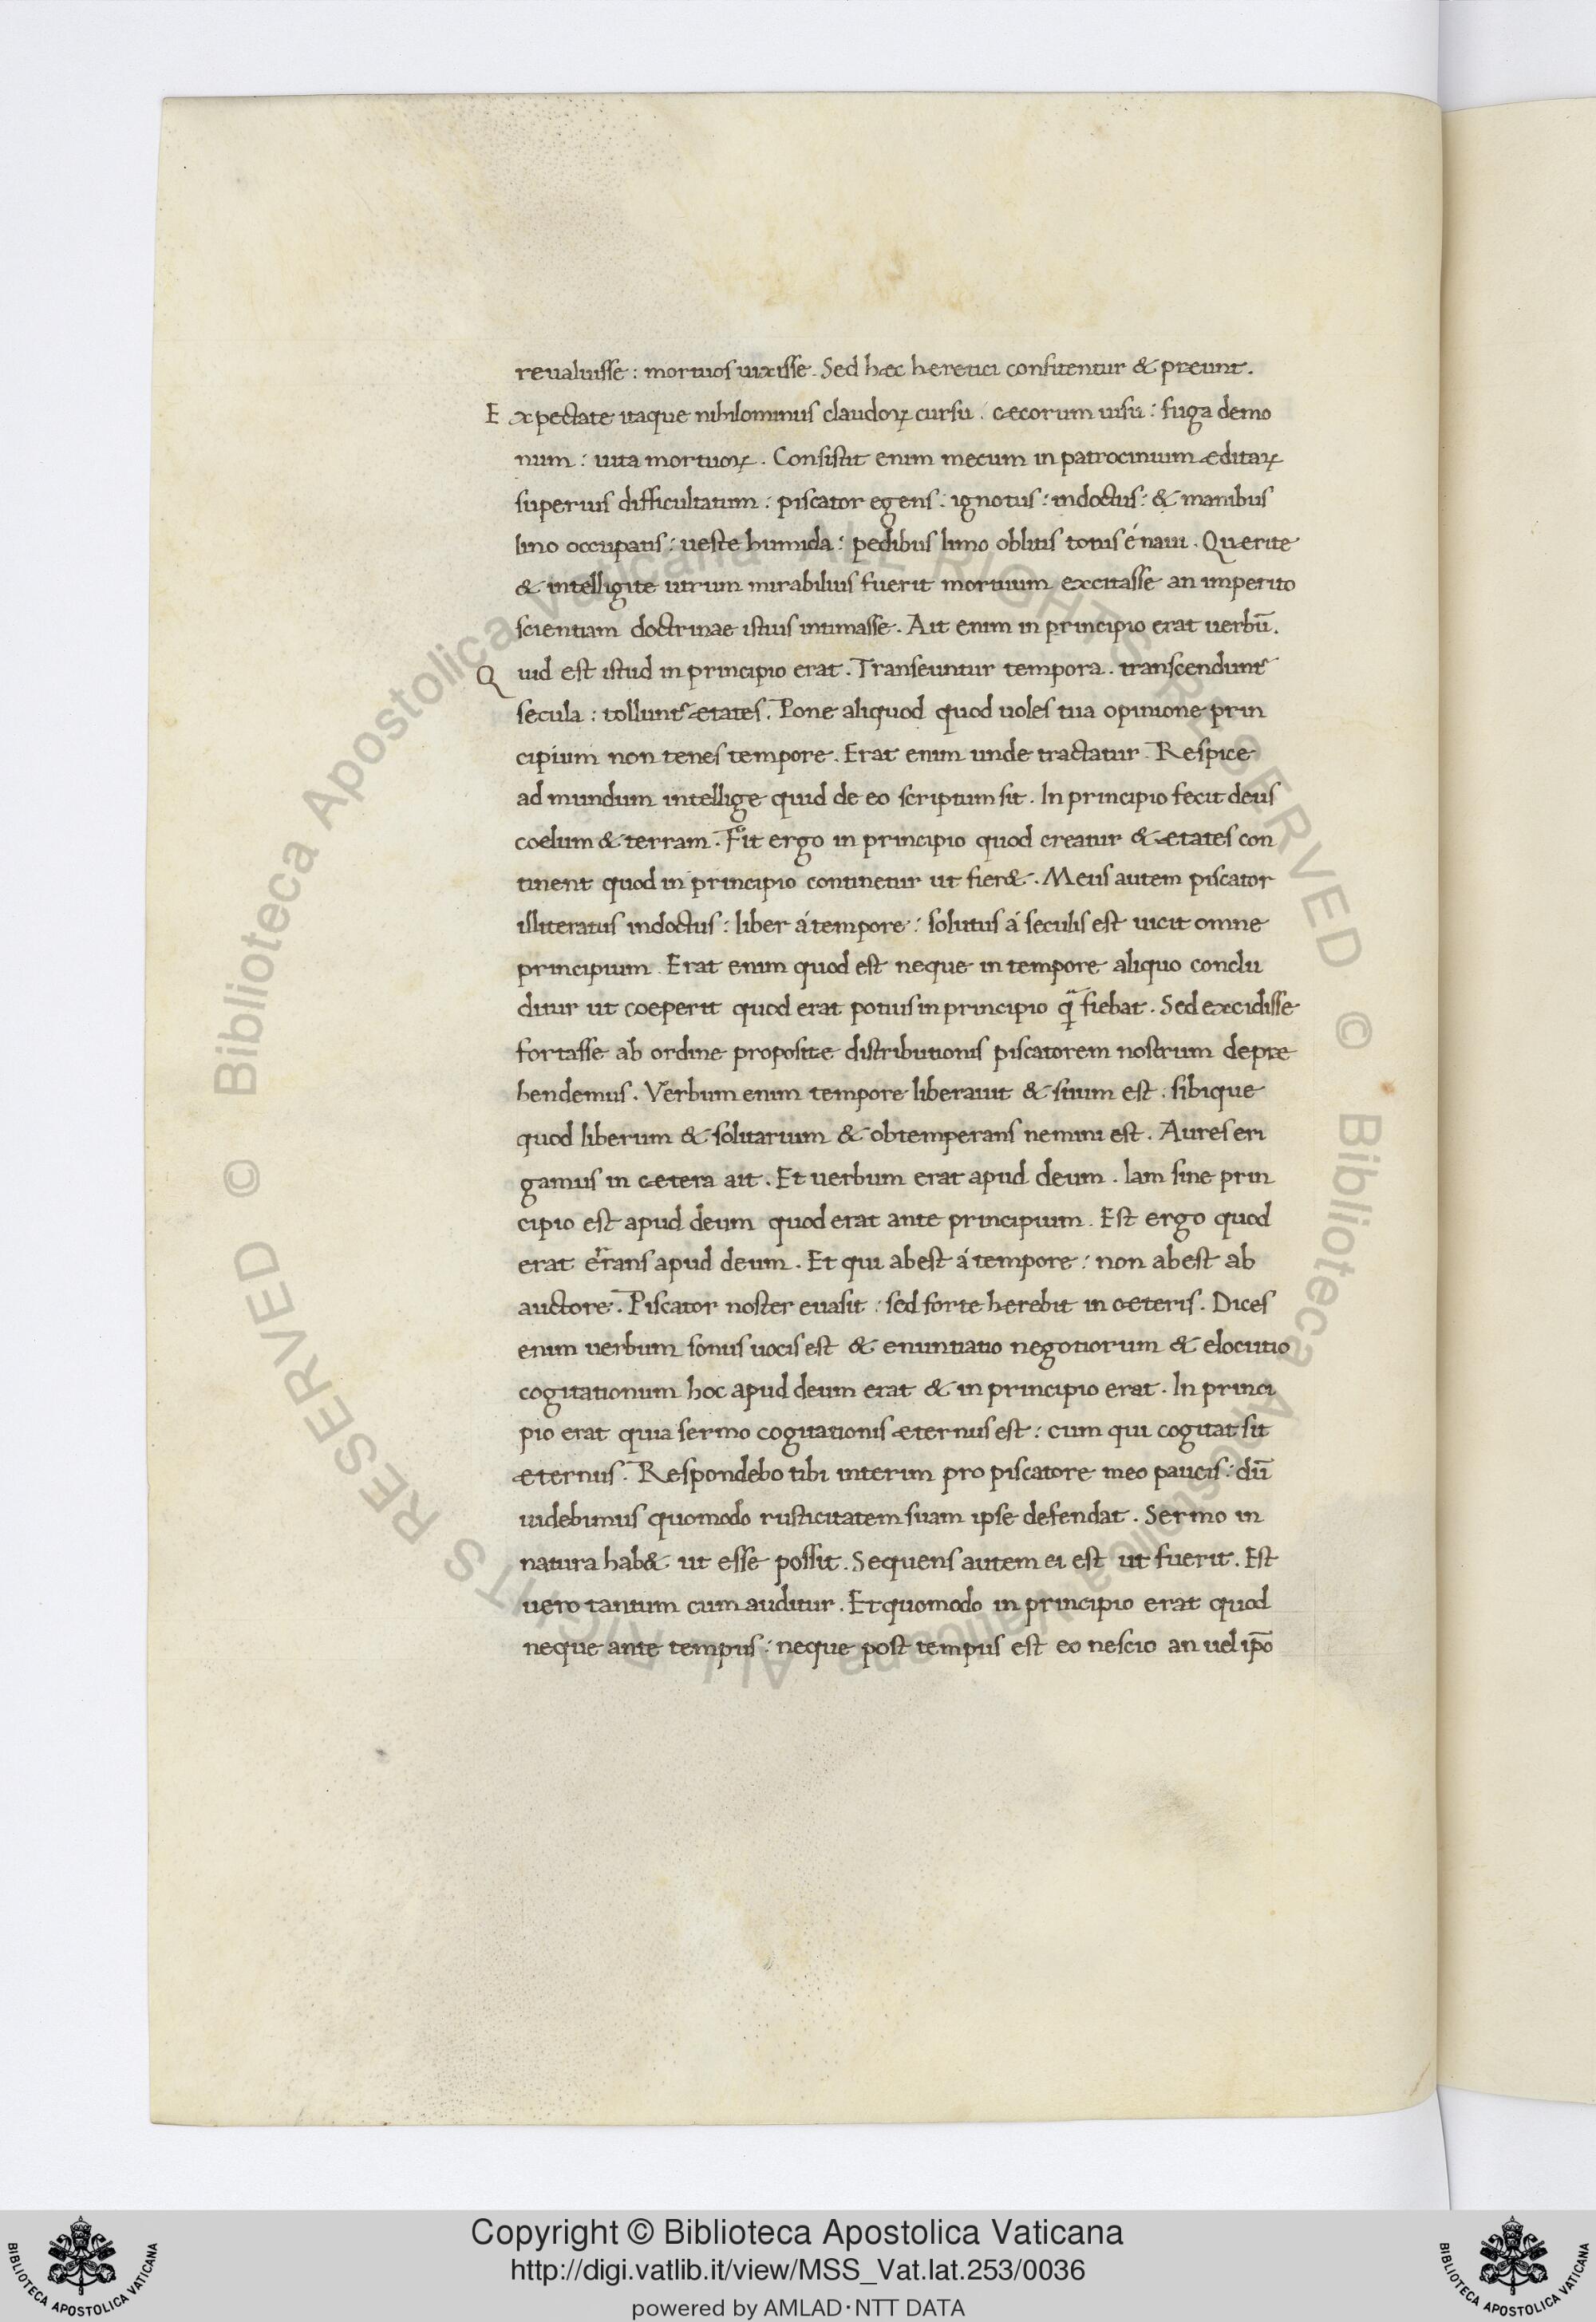 reualuisse : mortuos uixisse . Sed hæc heretici confitentur & pereunt .
E xpectate itaque nihilominus claudoꝝ cursu : cæcorum uisu : fuga demo
num : uita mortuoꝝ . Consistit enim mecum in patrocinium æditaꝝ
superius difficultatum : piscator egens : ignotus : indoctus : & manibus
lino occupatis : ueste humida : pedibus limo oblitis totus é naui . Querite
& intelligite utrum mirabilius fuerit mortuum excitasse an imperito
scientiam doctrinae istius intimasse . Ait enim in principio erat uerbū .
Q uid est istud in principio erat . Transeuntur tempora . transcendunt᷑
secula : tollunt᷑ ætates . Pone aliquod quod uoles tua opinione prin
cipium non tenes tempore . Erat enim unde tractatur . Respice
ad mundum intellige quid de eo scriptum sit . In principio fecit deus
coelum & terram . Fit ergo in principio quod creatur & ætates con
tinent quod in principio continetur ut fier& . Meus autem piscator
illiteratus indoctus : liber á tempore : solutus á seculis est uicit omne
principium . Erat enim quod est neque in tempore aliquo conclu
ditur ut coeperit quod erat potius in principio ꝙ̃ fiebat . Sed excidisse
fortasse ab ordine proposite distributionis piscatorem nostrum depræ
hendemus . Verbum enim tempore liberauit & suum est : sibique
quod liberum & solitarium & obtemperans nemini est . Aures eri
gamus in cætera ait . Et uerbum erat apud deum . Iam sine prin
cipio est apud deum quod erat ante principium . Est ergo quod
erat errans apud deum . Et qui abest á tempore : non abest ab
auctore . Piscator noster euasit : sed forte herebit in cæteris . Dices
enim uerbum sonus uocis est & enuntiatio negotiorum & elocutio
cogitationum hoc apud deum erat & in principio erat . In princi
pio erat quia sermo cogitationis æternus est : cum qui cogitat sit
æternus . Respondebo tibi interim pro piscatore meo paucis : dū
uidebimus quomodo rusticitatem suam ipse defendat . Sermo in
natura hab& ut esse possit . Sequens autem ei est ut fuerit . Est
uero tantum cum auditur . Et quomodo in principio erat quod
neque ante tempus : neque post tempus est eo nescio an uel ip̄o
© Biblioteca Apostolica Vaticana ALL RIGHTS RESERVED © Biblioteca Apostolica Vaticana ALL RIGHTS RESERVED
Copyright © Biblioteca Apostolica Vaticana
http://digi.vatlib.it/view/MSS_Vat.lat.253/0036
powered by AMLAD·NTT DATA
BIBLIOTECA APOSTOLICA VATICANA
BIBLIOTECA APOSTOLICA VATICANA